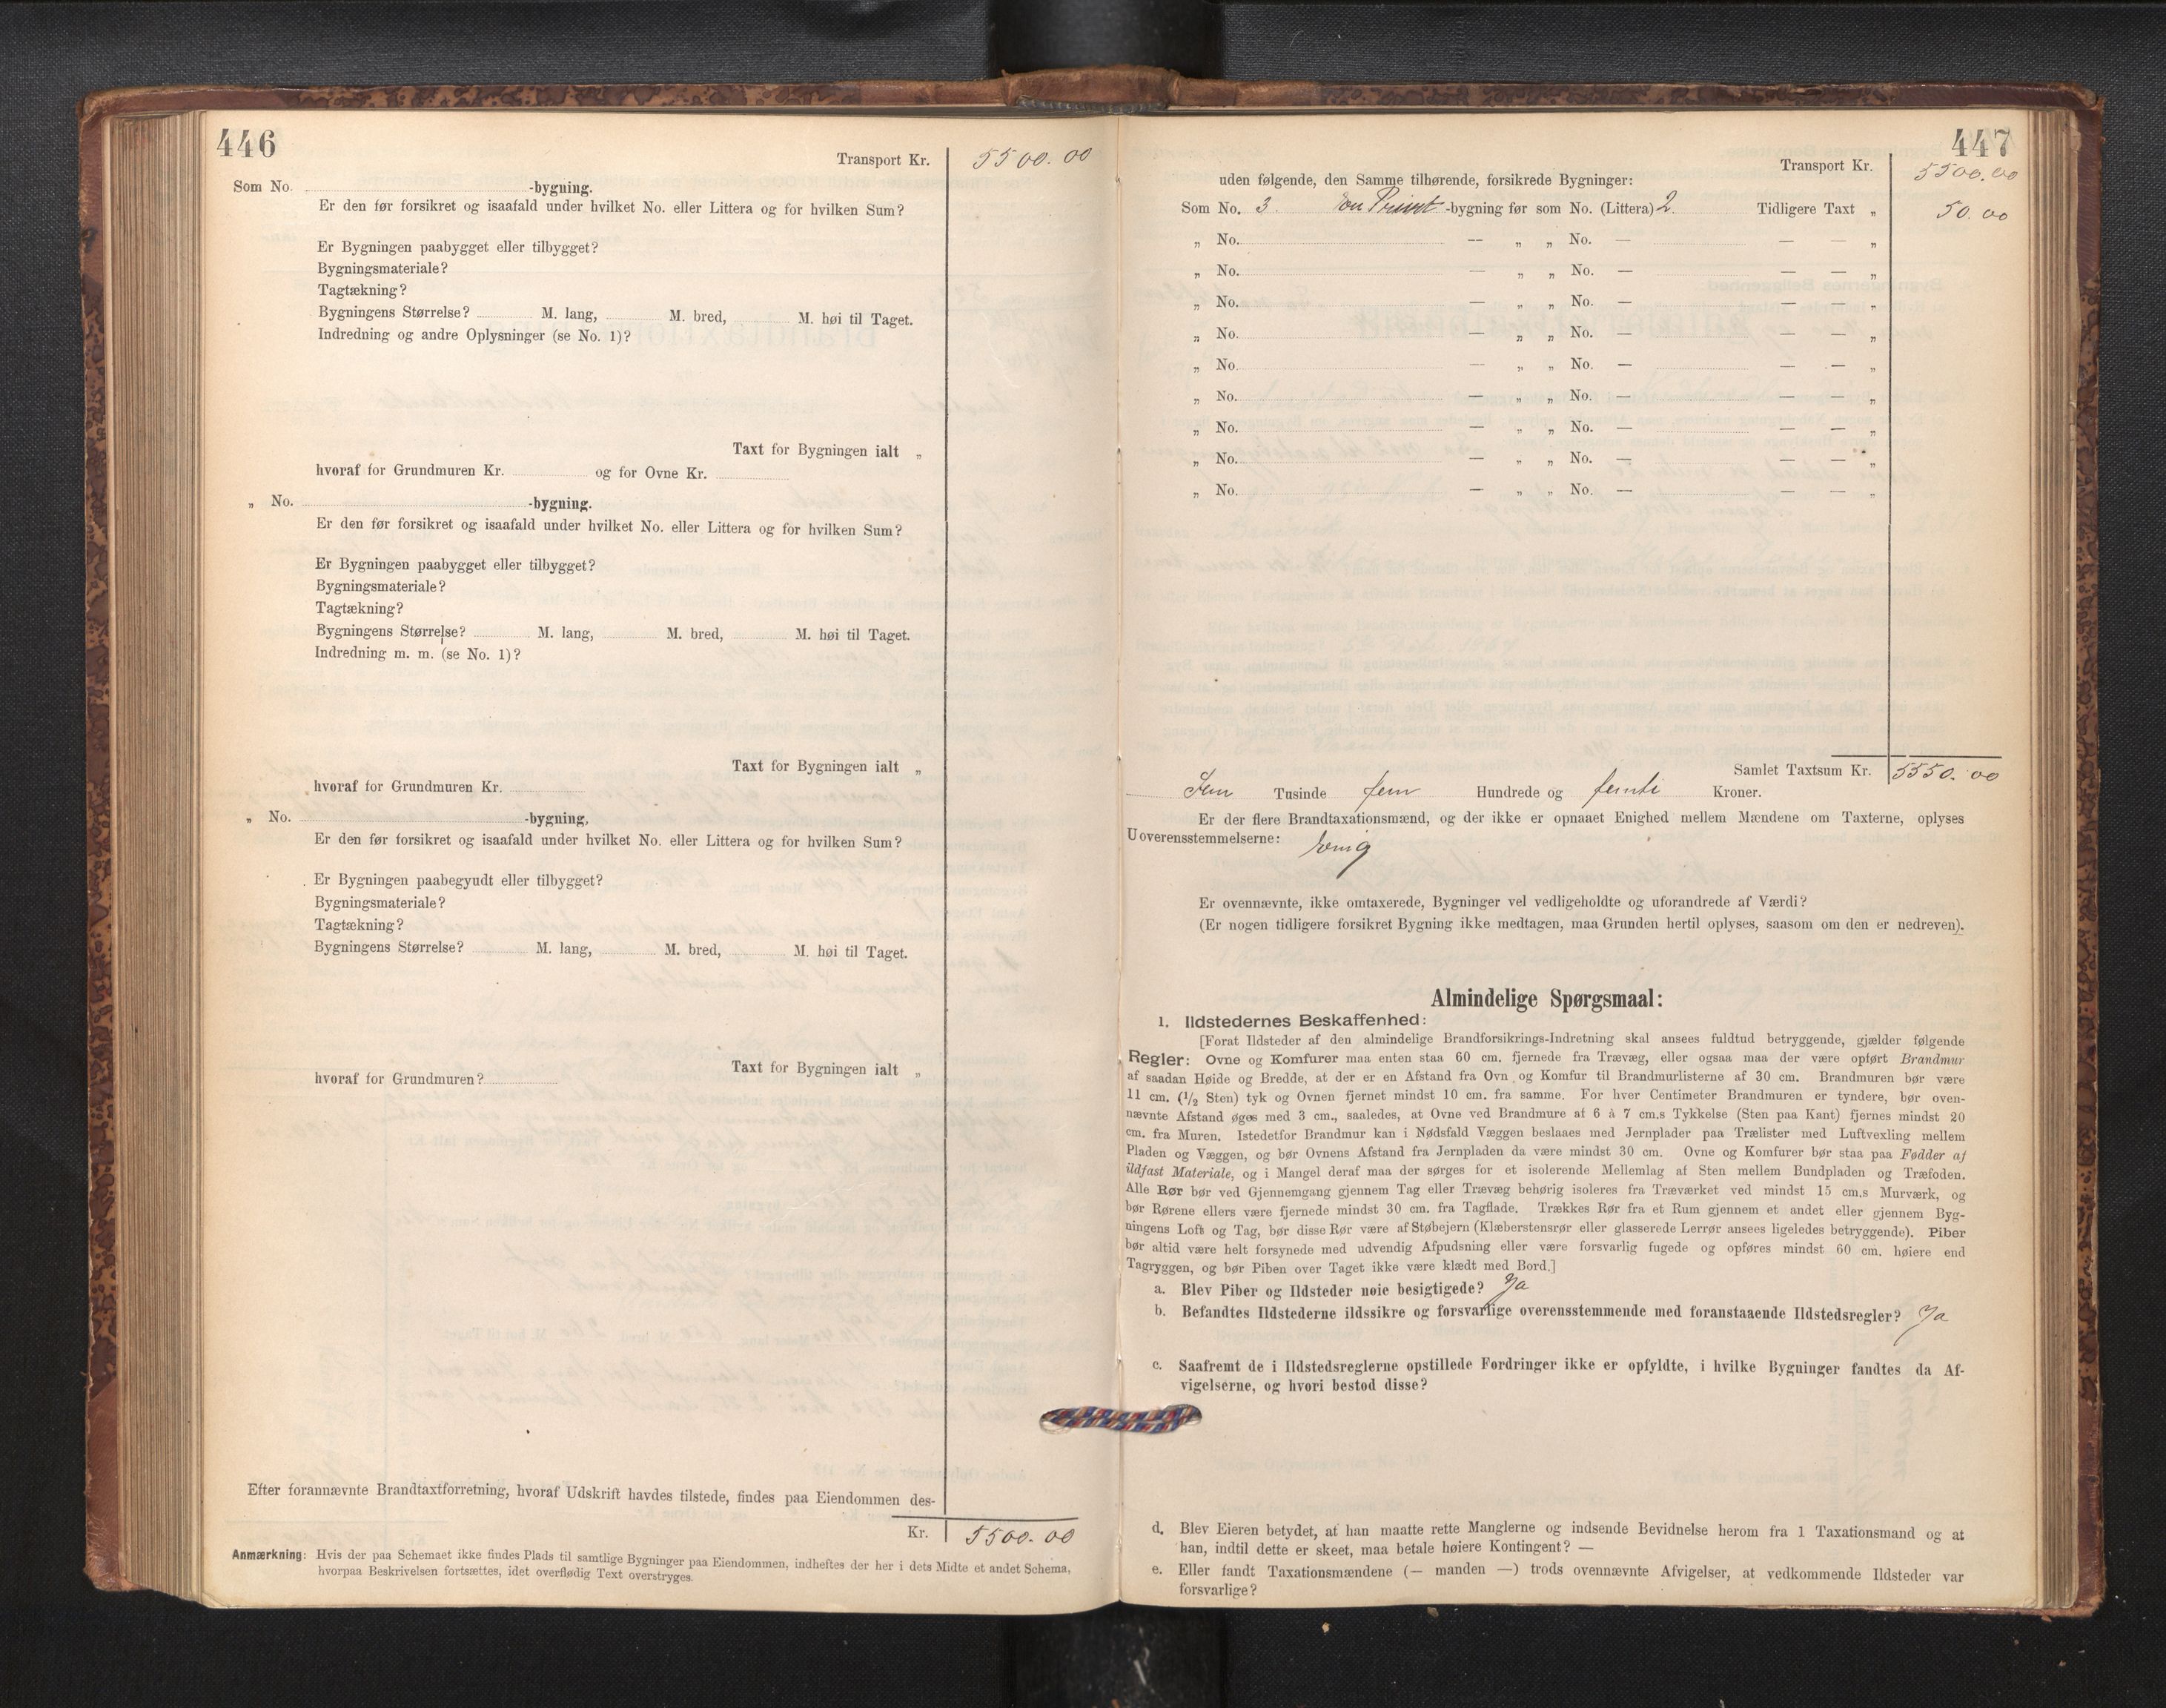 446
Transport Kr. 5500.00
Som No. -bygning.
Er den før forsikret og isaafald under hvilket No. eller Littera og for hvilken Sum?
Er Bygningen paabygget eller tilbygget?
Bygningsmateriale?
Tagtækning?
Bygningens Størrelse? M. lang, M. bred, M. høi til Taget.
Indredning og andre Oplysninger (se No. 1)?
Taxt for Bygningen ialt „
hvoraf for Grundmuren Kr. og for Ovne Kr.
„ No. -bygning.
Er den før forsikret og isaafald under hvilket No. eller Littera og for hvilken Sum?
Er Bygningen paabygget eller tilbygget?
Bygningsmateriale?
Tagtækning?
Bygningens Størrelse? M. lang, M. bred, M. høi til Taget.
Indredning m. m. (se No. 1)?
Taxt for Bygningen ialt „
hvoraf for Grundmuren Kr.
„ No. -bygning,
Er den før forsikret og isaafald under hvilket No. eller Littera og for hvilken Sum?
Er Bygningen paabegyudt eller tilbygget?
Bygningsmateriale?
Tagtækning?
Bygningens Størrelse? M. lang, M. bred, M. høi til Taget.
Taxt for Bygningen ialt „
hvoraf for Grundmuren?
Efter forannævnte Brandtaxtforretning, hvoraf Udskrift havdes tilstede, findes paa Eiendommen des-
Kr. 5500.00
Anmærkning: Hvis der paa Schemaet ikke findes Plads til samtlige Bygninger paa Eiendommen, indheftes der her i dets Midte et andet Schema,
hvorpaa Beskrivelsen fortsættes, idet overflødig Text overstryges.
447
Transport Kr. 5500.00
uden følgende, den Samme tilhørende, forsikrede Bygninger:
Som No. 3. -bygning før som No. (Littera) 2. Tidligere Taxt „ 50.00
„ No. — „ „ No. — — — „
„ No. — „ „ No. — — — „
„ No. — „ „ No. — — — „
„ No. — „ „ No. — — — „
„ No. — „ „ No. — — — „
„ No. — „ „ No. — — — „
„ No. — „ „ No. — — — „
„ No. — „ „ No. — — — „
„ No. — „ „ No. — — — „
Samlet Taxtsum Kr. 5550.00
Fem Tusinde fem Hundrede og femti Kroner.
Er der flere Brandtaxationsmænd, og der ikke er opnaaet Enighed mellem Mændene om Taxterne, oplyses
Uoverensstemmelserne: Enig
Er ovennævnte, ikke omtaxerede, Bygninger vel vedligeholdte og uforandrede af Værdi?
(Er nogen tidligere forsikret Bygning ikke medtagen, maa Grunden hertil oplyses, saasom om den er nedreven).
Almindelige Spørgsmaal:
1. Ildstedernes Beskaffenhed:
[Forat Ildsteder af den almindelige Brandforsikrings-Indretning skal ansees fuldtud betryggende, gjælder følgende
Regler: Ovne og Komfurer maa enten staa 60 cm. fjernede fra Trævæg, eller ogsaa maa der være opført Brandmur
af saadan Høide og Bredde, at der er en Afstand fra Ovn og Komfur til Brandmurlisterne af 30 cm. Brandmuren bør være
11 cm. (1/2 Sten) tyk og Ovnen fjernet mindst 10 cm. fra samme. For hver Centimeter Brandmuren er tyndere, bør oven-
nævnte Afstand øges med 3 cm., saaledes, at Ovne ved Brandmure at 6 à 7 cm.s Tykkelse (Sten paa Kant) fjernes mindst 20
cm. fra Muren. Istedetfor Brandmur kan i Nødsfald Væggen beslaaes med Jernplader paa Trælister med Luftvexling mellem
Pladen og Væggen, og bør Ovnens Afstand fra Jernpladen da være mindst 30 cm. Ovne og Komfurer bør staa paa Fødder af
ildfast Materiale, og i Mangel deraf maa der sørges for et isolerende Mellemlag af Sten mellem Bundpladen og Træfoden.
Alle Rør bør ved Gjennemgang gjennem Tag eller Trævæg behørig isoleres fra Træværket ved mindst 15 cm.s Murværk, og
bør Rørene ellers være fjernede mindst 30 cm. fra Tagflade. Trækkes Rør fra et Rum gjennem et andet eller gjennem Byg-
ningens Loft og Tag, bør disse Rør være af Støbejern (Klæberstensrør eller glasserede Lerrør ansees ligeledes betryggende). Piber
bør altid være helt forsynede med udvendig Afpudsning eller være forsvarlig fugede og opføres mindst 60 cm. høiere end
Tagryggen, og bør Piben over Taget ikke være klædt med Bord.]
a. Blev Piber og Ildsteder nøie besigtigede? Ja
b. Befandtes Ildstederne ildssikre og forsvarlige overensstemmende med foranstaaende Ildstedsregler? Ja
c. Saafremt de i Ildstedsreglerne opstillede Fordringer ikke er opfyldte, i hvilke Bygninger fandtes da Af-
vigelserne, og hvori bestod disse?
d. Blev Eieren betydet, at han maatte rette Manglerne og indsende Bevidnelse herom fra 1 Taxationsmand og at
han, indtil dette er skeet, maa betale høiere Kontingent? —
e. Eller fandt Taxationsmændene (— manden —) trods ovennævnte Afvigelser, at vedkommende Ildsteder var
forsvarlige?